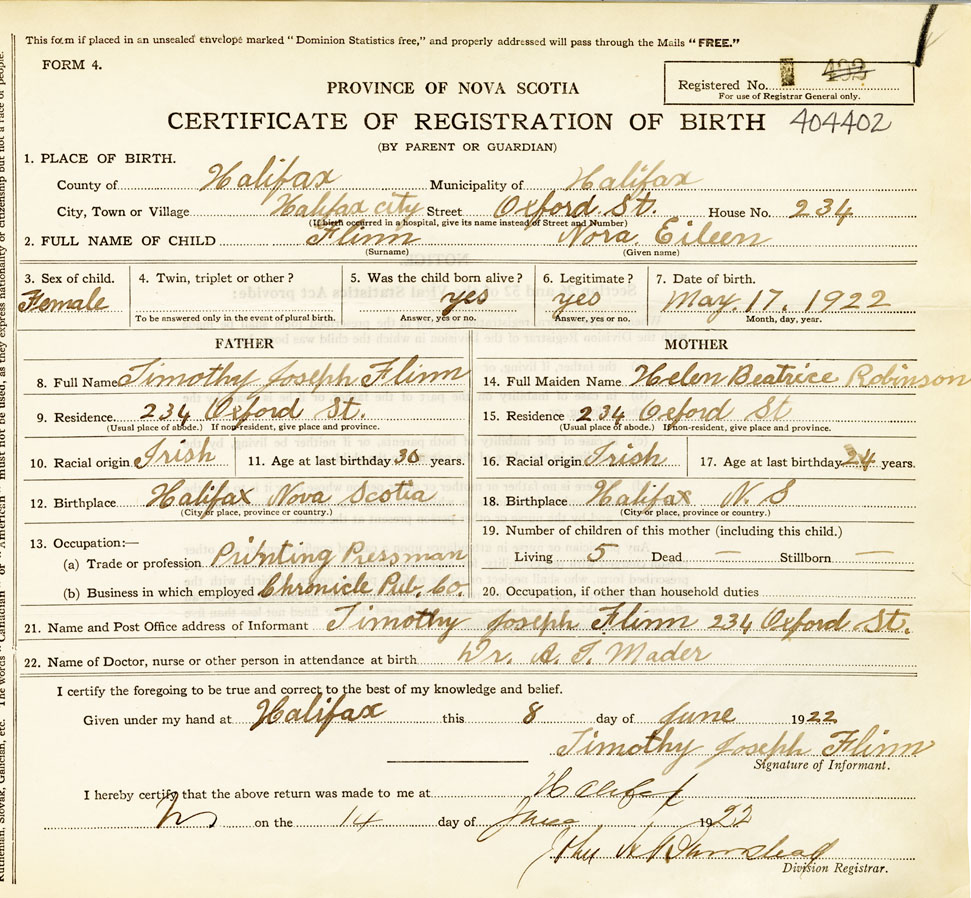 This form if placed in an unsealed envelope marked "Dominion Statistics free," and properly addressed will pass through the Mails "FREE."
FORM 4.
PROVINCE OF NOVA SCOTIA
Registered No. 403
For use of Registrar General only.
CERTIFICATE OF REGISTRATION OF BIRTH 404402
(BY PARENT OR GUARDIAN)
1. PLACE OF BIRTH.
County of Halifax Municipality of Halifax
City, Town or Village Halifax city Street Oxford St. House No. 234
(If birth occurred in a hospital, give its name instead of Street and Number)
2. FULL NAME OF CHILD Flinn Nora Eileen
(Surname) (Given name)
3. Sex of child. 4. Twin, triplet or other? 5. Was the child born alive? 6. Legitimate? 7. Date of birth.
Female yes yes May. 17. 1922
To be answered only in the event of plural birth. Answer, yes or no. Answer, yes or no. Month, day, year.
FATHER
8. Full Name Timothy Joseph Flinn
9. Residence. 234 Oxford St.
(Usual place of abode.) If non-resident, give place and province.
10. Racial origin Irish 11. Age at last birthday 30 years.
12. Birthplace Halifax Nova Scotia
(City or place, province or country.)
13. Occupation:—
(a) Trade or profession Printing Pressman
(b) Business in which employed Chronicle Pub. Co.
MOTHER
14. Full Maiden Name Helen Beatrice Robinson
15. Residence 234 Oxford St
(Usual place of abode.) If non-resident, give place and province.
16. Racial origin Irish 17. Age at last birthday 24 years.
18. Birthplace Halifax N. S
(City or place, province or country.)
19. Number of children of this mother (including this child.)
Living 5 Dead — Stillborn —
20. Occupation, if other than household duties
21. Name and Post Office address of Informant Timothy Joseph Flinn 234 Oxford St.
22. Name of Doctor, nurse or other person in attendance at birth Dr. A. T. Mader
I certify the foregoing to be true and correct to the best of my knowledge and belief.
Given under my hand at Halifax this 8 day of June 1922
Timothy Joseph Flinn
Signature of Informant.
I hereby certify that the above return was made to me at Halifax
on the 14 day of June 1922
Division Registrar.